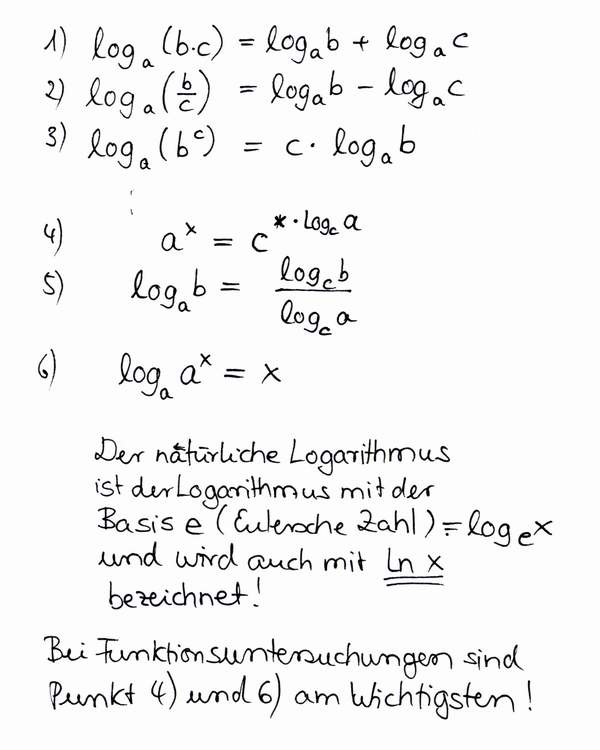 1) logₐ(b·c) = logₐb + logₐc
2) logₐ(b/c) = logₐb − logₐc
3) logₐ(bᶜ) = c · logₐb
4) aˣ = c^(x·log_c a)
5) logₐb = log_c b / log_c a
6) logₐaˣ = x
Der natürliche Logarithmus
ist der Logarithmus mit der
Basis e (Eulersche Zahl) = logₑx
und wird auch mit ln x
bezeichnet!
Bei Funktionsuntersuchungen sind
Punkt 4) und 6) am Wichtigsten!